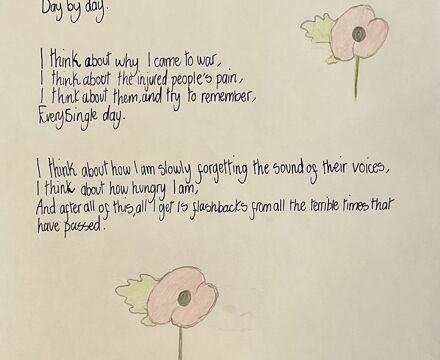 Day by day.
I think about why I came to war,
I think about the injured people's pain,
I think about them, and try to remember,
Every Single day.
I think about how I am slowly forgetting the sound of their voices,
I think about how hungry I am,
And after all of this, all I get is flashbacks from all the terrible times that
have passed.